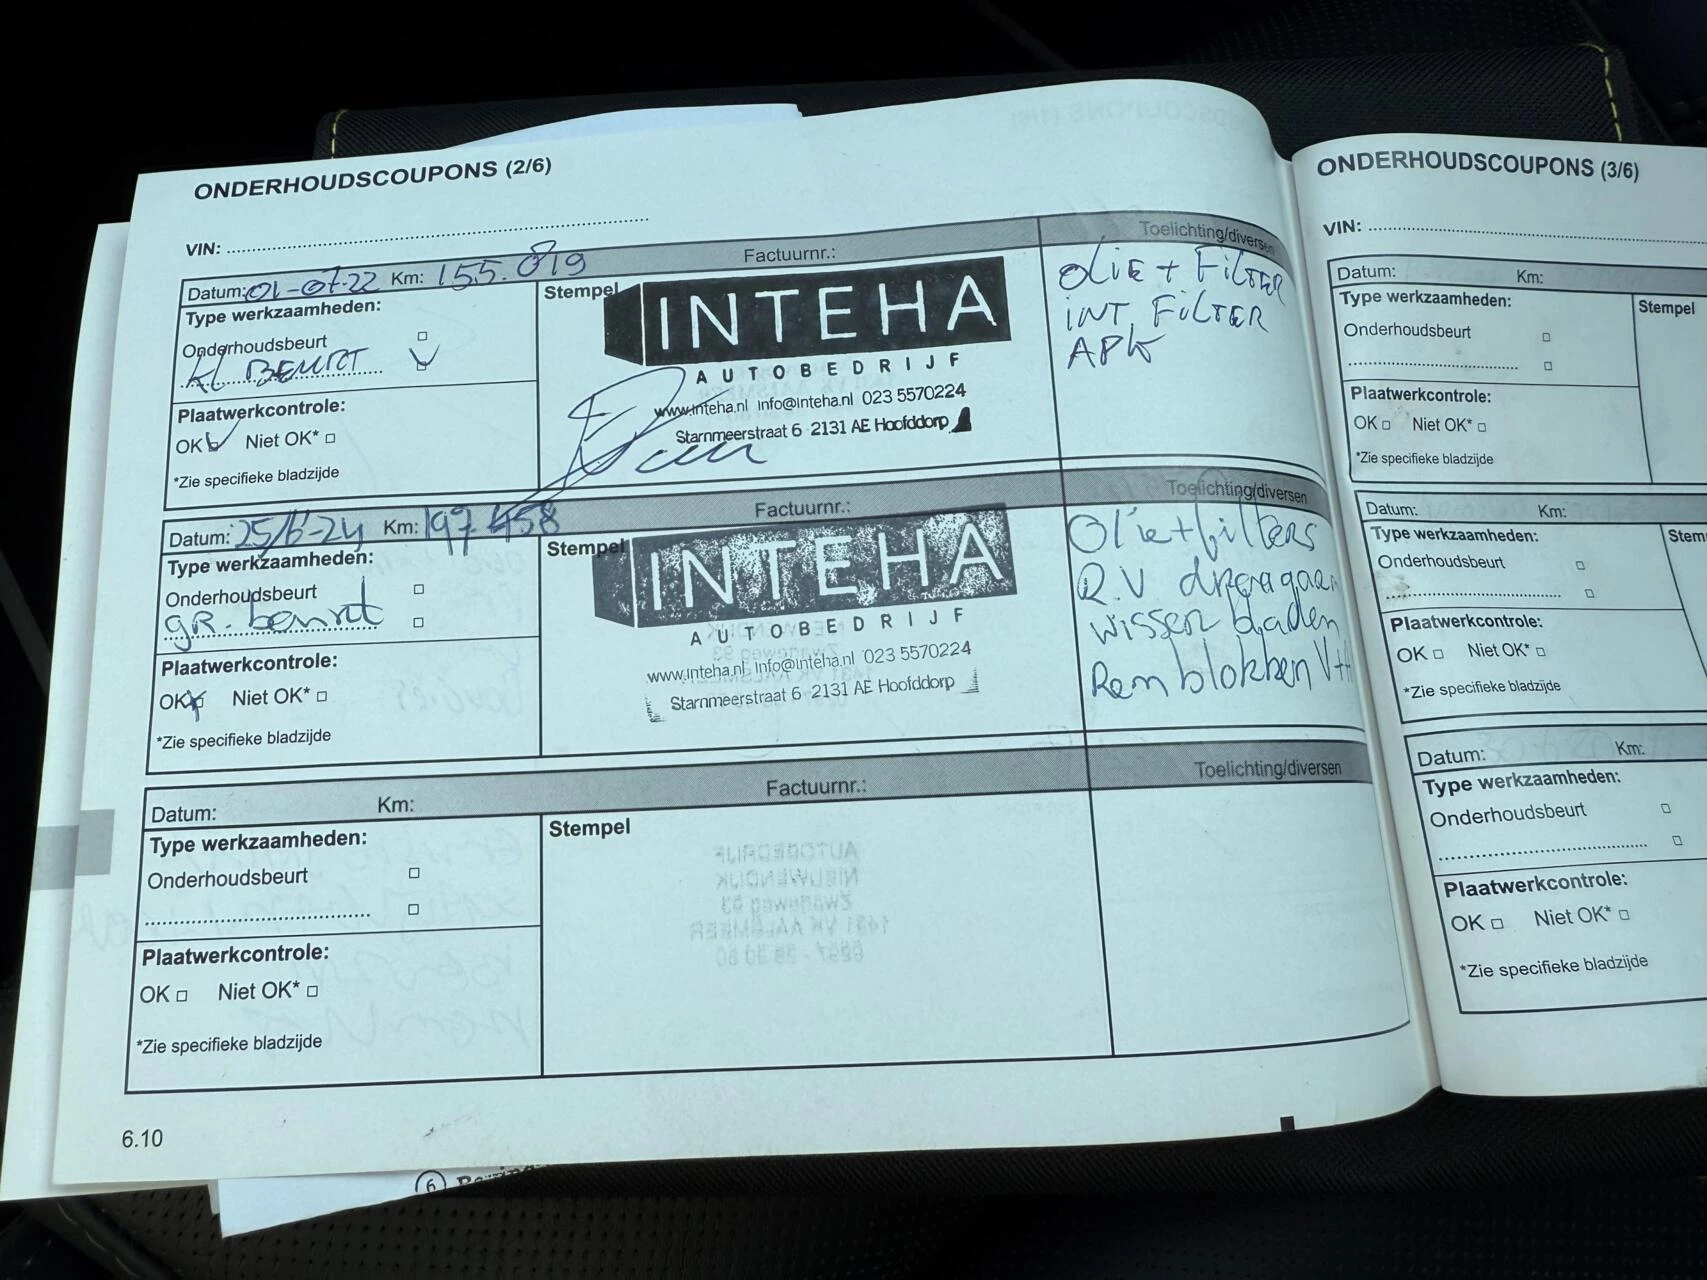 ONDERHOUDSCOUPONS (2/6)
VIN:
Datum: 01-07-22 Km: 155.819 Factuurnr.: Toelichting/diversen
Type werkzaamheden:
Onderhoudsbeurt
kl BEURT
Plaatwerkcontrole:
OK Niet OK*
*Zie specifieke bladzijde
Stempel
INTEHA
AUTOBEDRIJF
www.inteha.nl info@inteha.nl 023 5570224
Starnmeerstraat 6 2131 AE Hoofddorp
OLIE + FILTER
INT. FILTER
APK
Datum: 25/6-24 Km: 197 458 Factuurnr.: Toelichting/diversen
Type werkzaamheden:
Onderhoudsbeurt
gR. beurt
Plaatwerkcontrole:
OK Niet OK*
*Zie specifieke bladzijde
Stempel
INTEHA
AUTOBEDRIJF
www.inteha.nl info@inteha.nl 023 5570224
Starnmeerstraat 6 2131 AE Hoofddorp
Olie + filters
R.V draagarm
wissenbladen
Remblokken V+A
Datum: Km: Factuurnr.: Toelichting/diversen
Type werkzaamheden:
Onderhoudsbeurt
Plaatwerkcontrole:
OK Niet OK*
*Zie specifieke bladzijde
Stempel
6.10
ONDERHOUDSCOUPONS (3/6)
VIN:
Datum: Km:
Type werkzaamheden:
Onderhoudsbeurt
Plaatwerkcontrole:
OK Niet OK*
*Zie specifieke bladzijde
Stempel
Datum: Km:
Type werkzaamheden:
Onderhoudsbeurt
Plaatwerkcontrole:
OK Niet OK*
*Zie specifieke bladzijde
Stem
Datum: Km:
Type werkzaamheden:
Onderhoudsbeurt
Plaatwerkcontrole:
OK Niet OK*
*Zie specifieke bladzijde